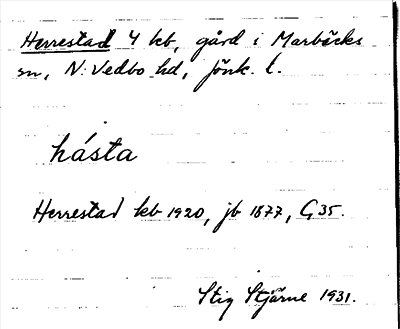 Herrestad 4 kb, gård i Marbäcks
sn, N. Vedbo hd, Jönk. l.
hásta
Herrestad kb 1920, jb 1877, G35.
Stig Stjärne 1931.